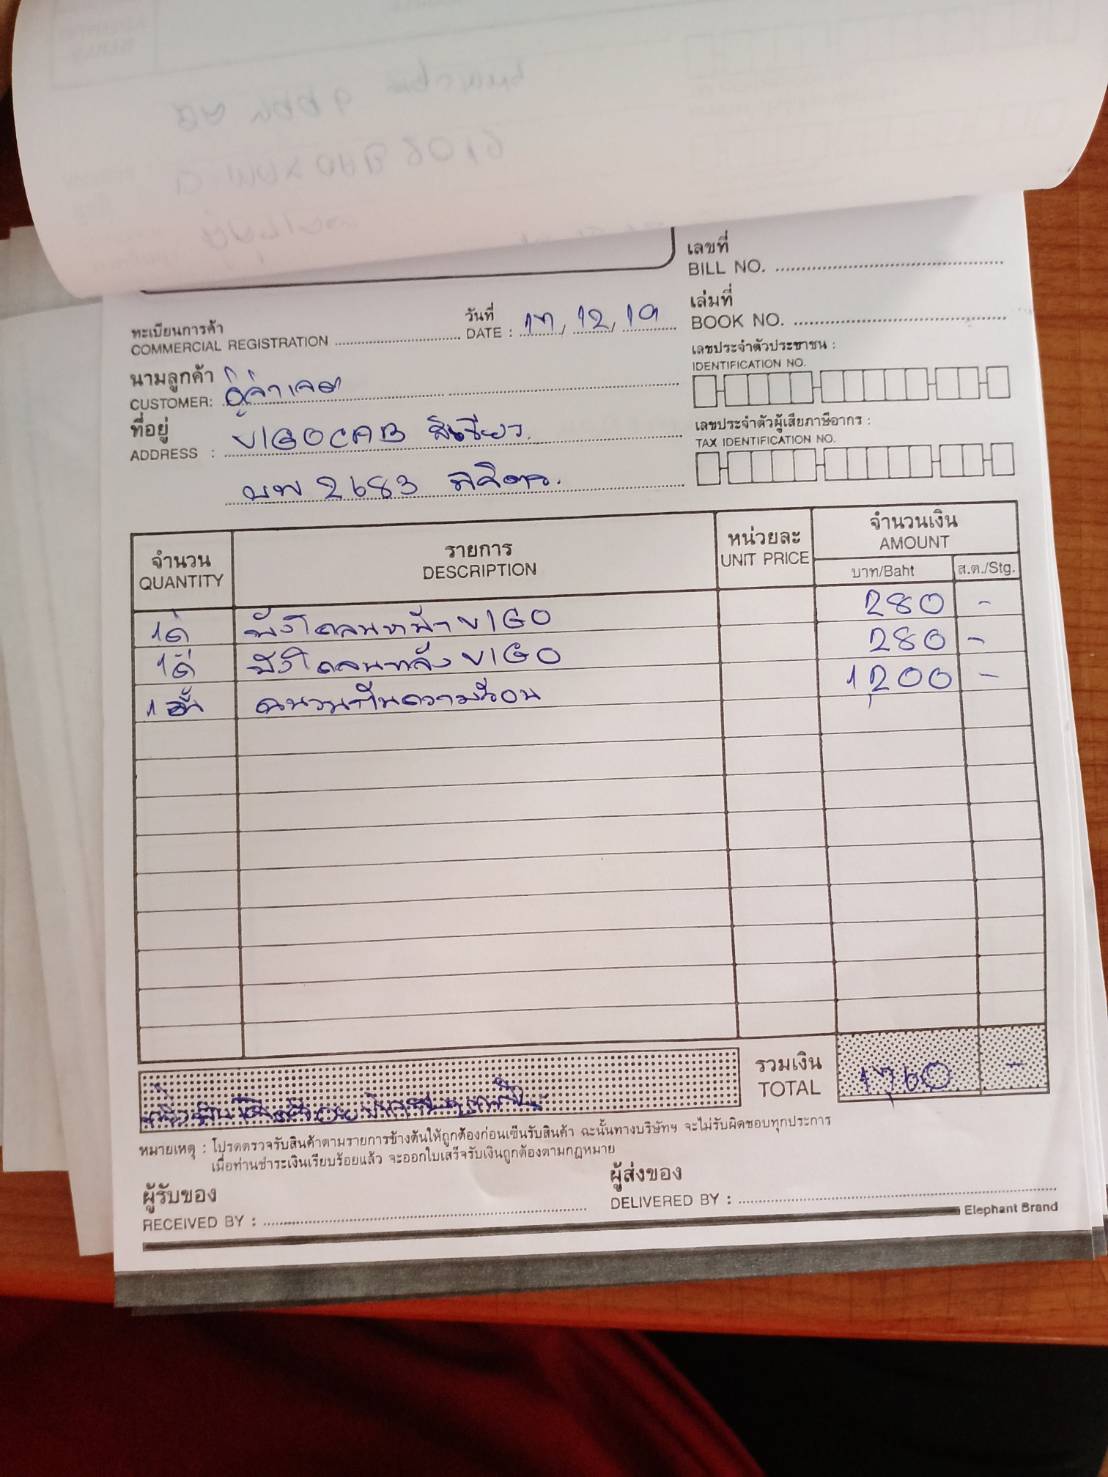 เลขที่
BILL NO.
ทะเบียนการค้า
COMMERCIAL REGISTRATION
วันที่
DATE : 17, 12, 19
เล่มที่
BOOK NO.
นามลูกค้า
CUSTOMER:
เลขประจำตัวประชาชน :
IDENTIFICATION NO.
ที่อยู่
ADDRESS : VIGO CAB
เลขประจำตัวผู้เสียภาษีอากร :
TAX IDENTIFICATION NO.
บพ 2683 พิจิตร.
จำนวน
QUANTITY
รายการ
DESCRIPTION
หน่วยละ
UNIT PRICE
จำนวนเงิน
AMOUNT
บาท/Baht
ส.ต./Stg.
1 VIGO 280 -
1 VIGO 280 -
1 ฉนวนกันความร้อน 1,200 -
รวมเงิน
TOTAL 1,760 -
หมายเหตุ : โปรดตรวจรับสินค้าตามรายการข้างต้นให้ถูกต้องก่อนเซ็นรับสินค้า ฉะนั้นทางบริษัทฯ จะไม่รับผิดชอบทุกประการ
เมื่อท่านชำระเงินเรียบร้อยแล้ว จะออกใบเสร็จรับเงินถูกต้องตามกฎหมาย
ผู้รับของ
RECEIVED BY :
ผู้ส่งของ
DELIVERED BY :
Elephant Brand